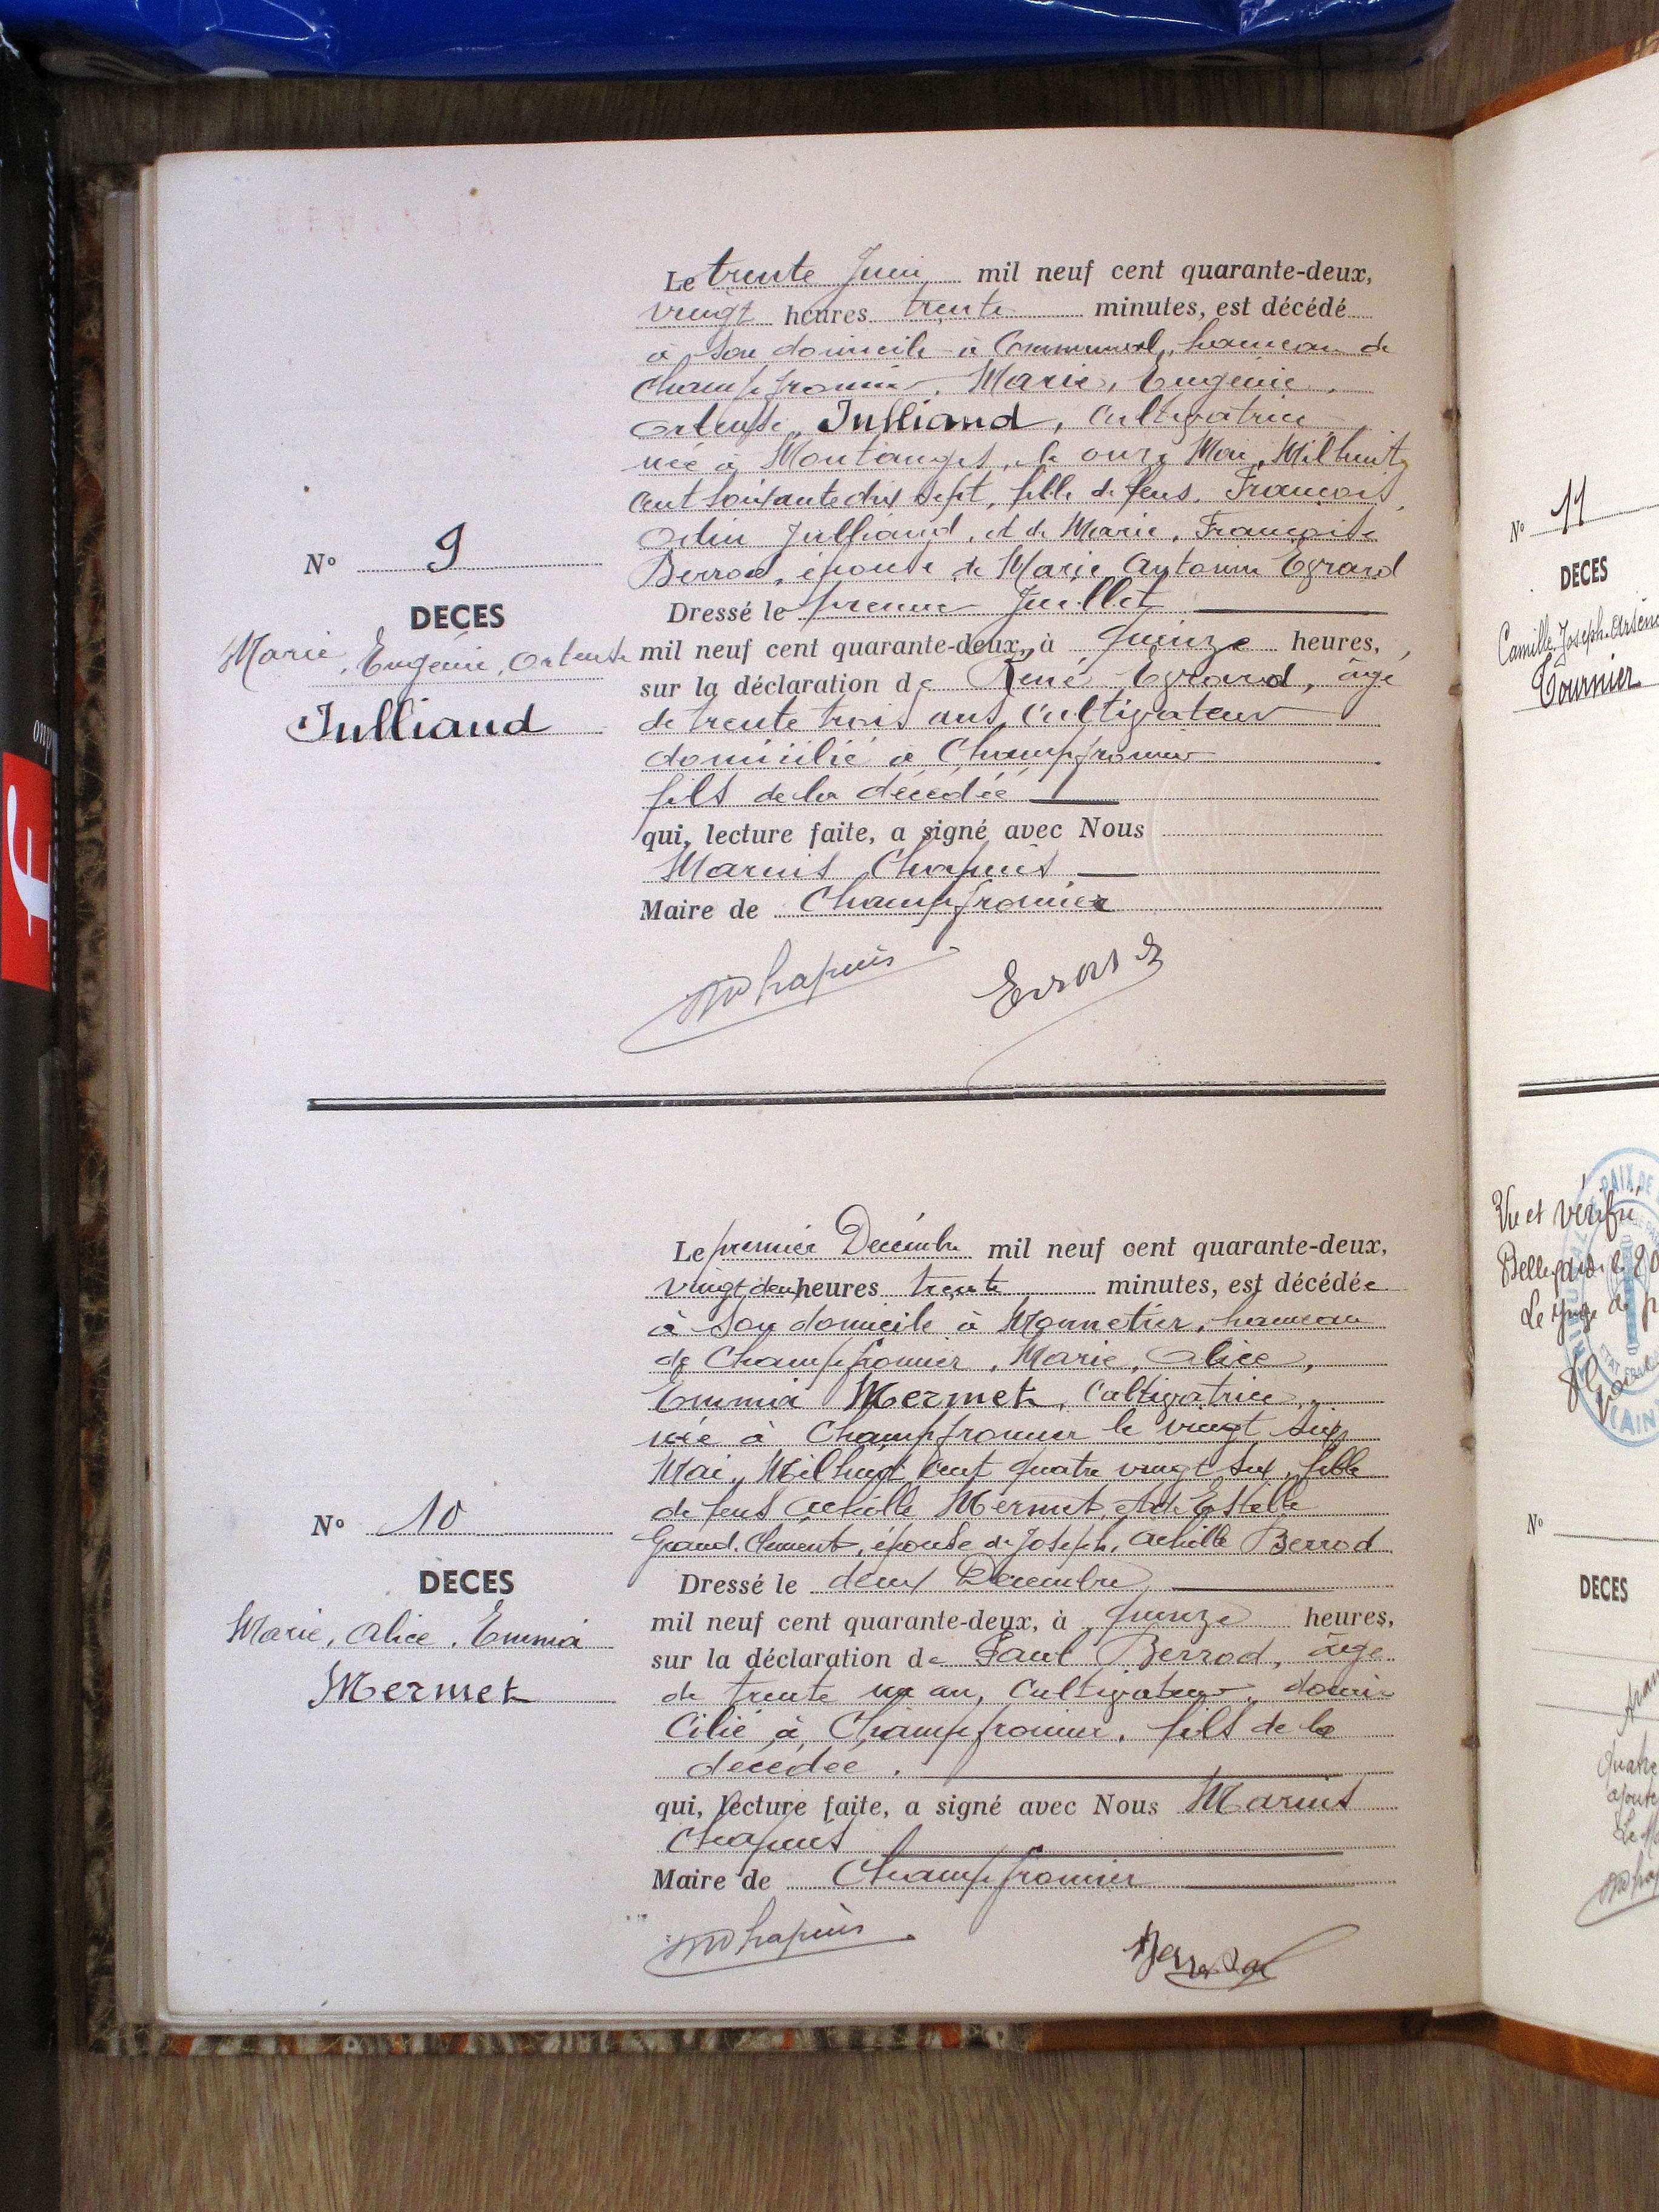 Le trente Juin mil neuf cent quarante-deux,
vingt heures trente minutes, est décédé
à son domicile à Communal, hameau de
Champfromier, Marie, Eugénie,
Ortense, Julliand, Cultivatrice
née à Montanges, le onze Mai, Mil huit
cent soixante dix sept, fille de feus, François,
Julliand, et de Marie, Françoise
Berrod, épouse de Marie Antonin Egraud
N° 9
DECES
Marie, Eugénie, Ortense
Julliand
Dressé le premier Juillet
mil neuf cent quarante-deux, à quinze heures,
sur la déclaration de René Egraud, âgé
de trente trois ans, Cultivateur
domicilié à Champfromier
fils de la décédée
qui, lecture faite, a signé avec Nous
Marius Chapuis
Maire de Champfromier
M Chapuis
Le premier Décembre mil neuf cent quarante-deux,
vingt deux heures trente minutes, est décédée
à son domicile à Monnetier, hameau
de Champfromier, Marie, Alice,
Emma Mermet, Cultivatrice,
née à Champfromier le vingt six
Mai, Mil huit cent quatre vingt six, fille
de feus Achille Mermet, et de Estelle
Grand.Clément, épouse de Joseph, Achille Berrod
N° 10
DECES
Marie, Alice, Emma
Mermet
Dressé le deux Décembre
mil neuf cent quarante-deux, à quinze heures,
sur la déclaration de Paul Berrod, âgé
de trente un an, Cultivateur, domi
cilié à Champfromier, fils de la
décédée.
qui, lecture faite, a signé avec Nous Marius
Chapuis
Maire de Champfromier
M Chapuis
Berrod
N° 11
DECES
Camille, Joseph, Arsène
Tournier
Vu et vérifié
Bellegarde le 20
Le juge de p
PAIX DE
N°
DECES
Quatre